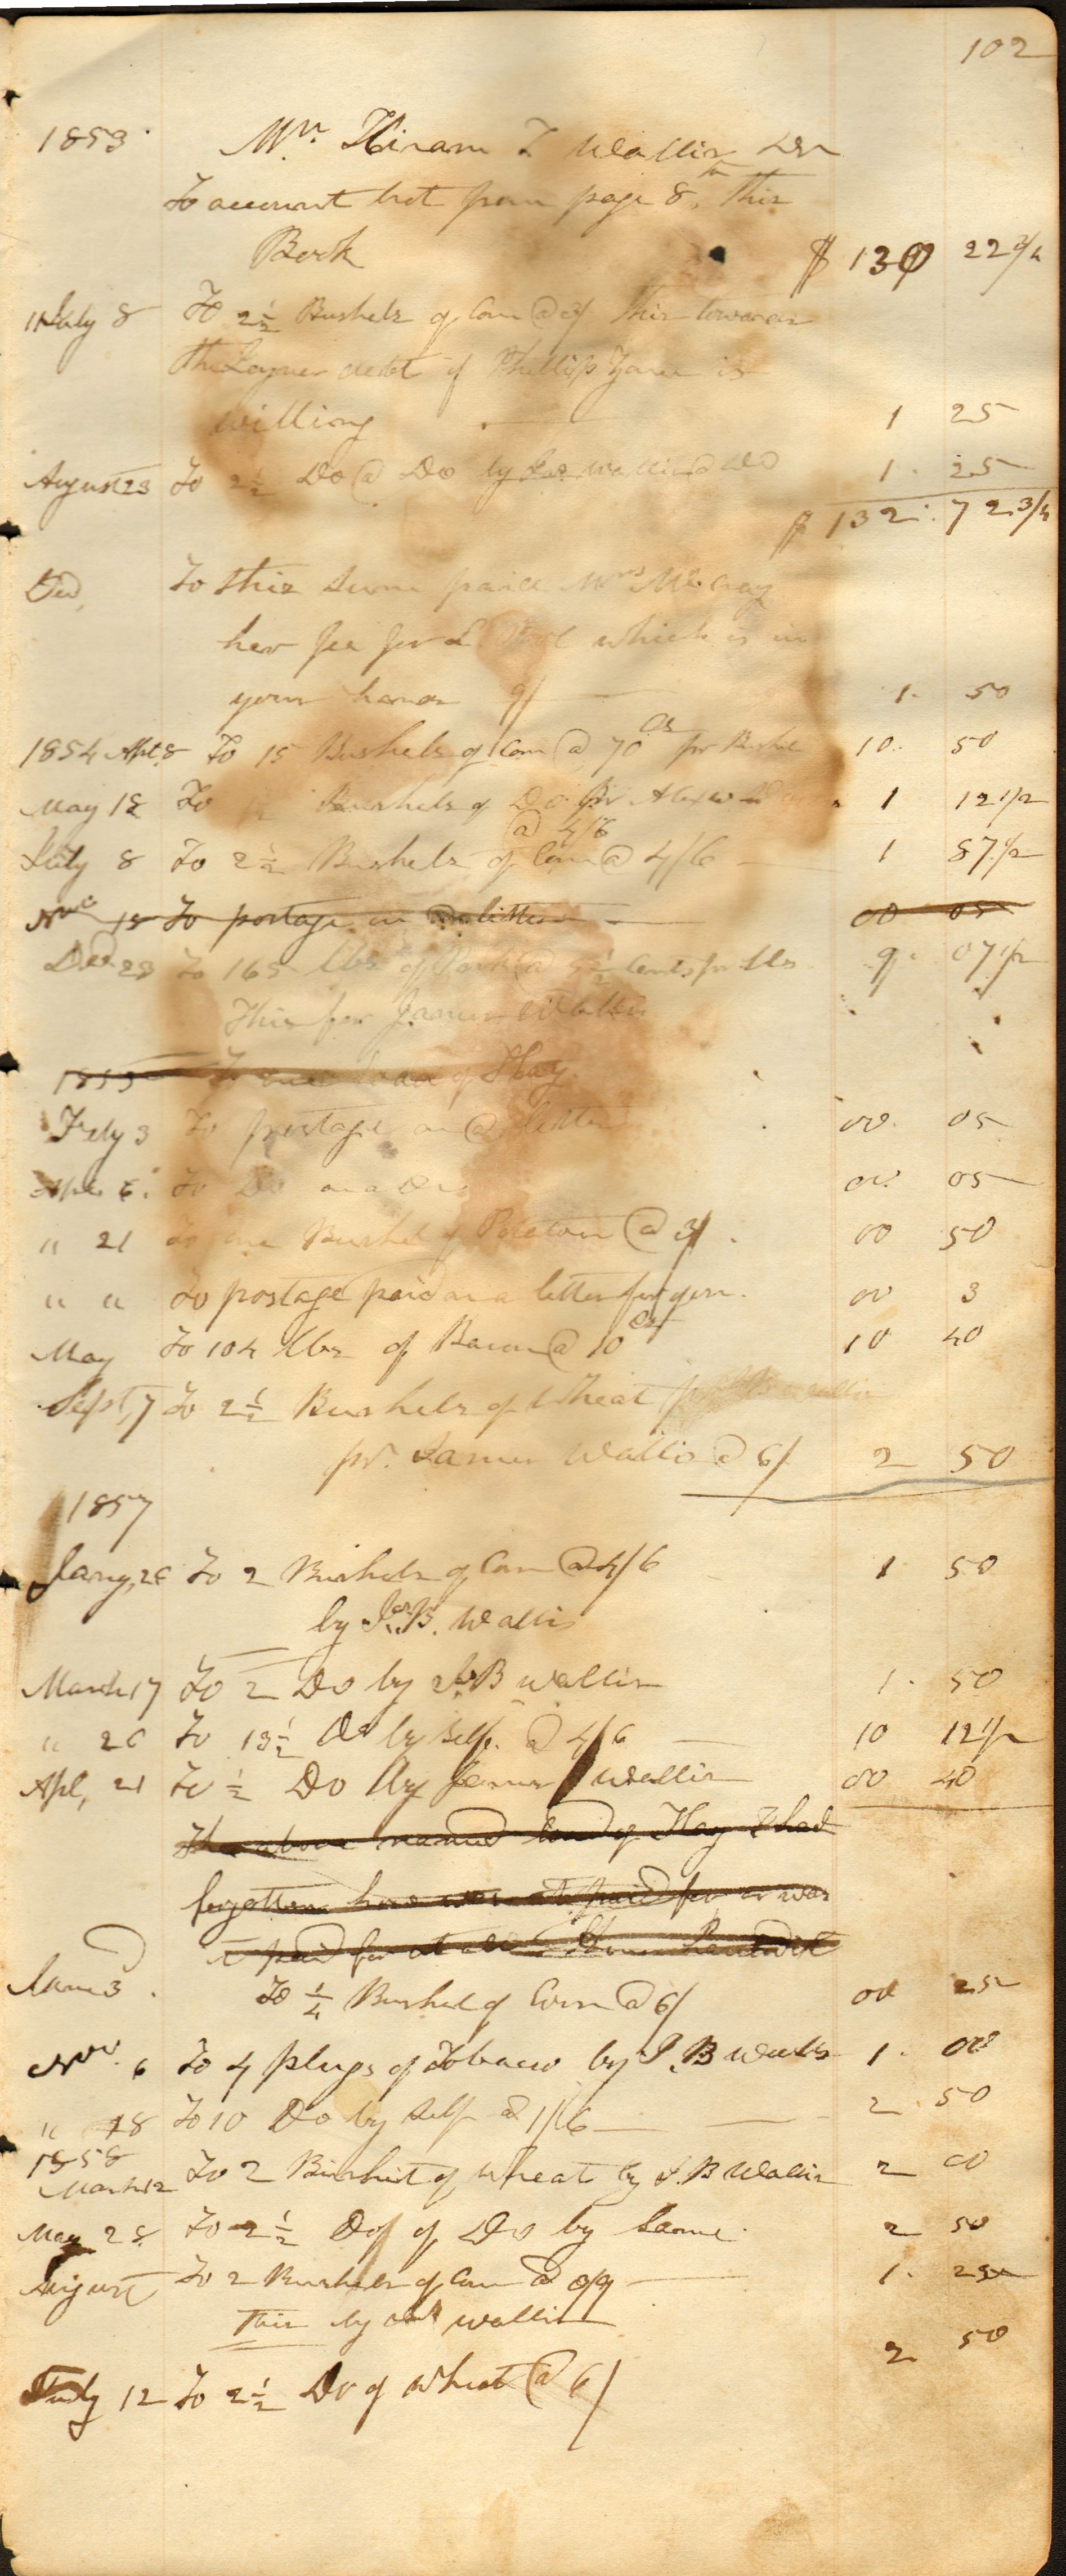 102
1853 Mr. Hiram T Wallis Dr
To account brot from page 8, this
Book $ 130 22 3/4
July 8 To 2 1/2 Bushels of Corn @ 3/ this towards
the debt if Phillip is
willing 1 25
August 23 To 2 1/2 Do @ Do by Wallis @ Do 1. 25
$ 132. 72 3/4
To this Sum paid Mrs McCray
her fee for which is in
your hands 9/ 1. 50
1854 Apl. 8 To 15 Bushels of Corn @ 70 cts pr Bushel 10. 50
May 18 To Bushels of Do Pr 1 12 1/2
@ 4/6
July 8 To 2 1/2 Bushels of Corn @ 4/6 1 87 1/2
Nov 18 To postage on a letter 00 05
Dec 23 To 165 lbs of Pork @ 5 1/2 Cents pr lb 9. 07 1/2
This for James Wallis
1855 To one load of Hay
Feby 3 To postage on a letter 00. 05
Apl. 6. To Do on a Do 00. 05
" 21 To one Bushel of Potatoes @ 3/. 00 50
" " To postage paid on a letter for you. 00 3
May To 104 lbs of Bacon @ 10 cts 10 40
Sept, 7 To 2 1/2 Bushels of Wheat
pr. James Wallis @ 6/ 2 50
1857
Jany, 26 To 2 Bushels of Corn @ 4/6 1 50
by Jas. B. Wallis
March 17 To 2 Do by J. B Wallis 1. 50
" 26 To 13 1/2 Do by Self. @ 4/6 10 12 1/2
Apl, 21 To 1/2 Do by James Wallis 00 40
The above named load of Hay I had
forgotten how was paid for or was
it paid for at all
June 3. To 1/4 Bushel of Corn @ 6/ 00 25
Nov. 6 To 4 plugs of Tobacco by J. B Wallis 1. 00
" 18 To 10 Do by Self @ 1/6 2. 50
1858
March 12 To 2 Bushels of Wheat by J. B Wallis 2 00
May 28 To 2 1/2 Do of Do by Same. 2 50
August To 2 Bushels of Corn @ 1. 25
This by Wallis
July 12 To 2 1/2 Do of Wheat @ 6/ 2 50